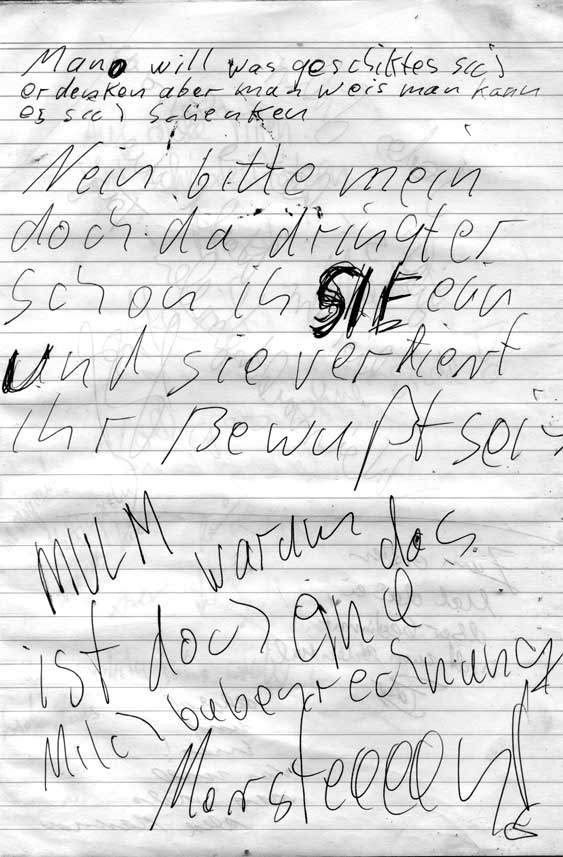 Mano will was geschiktes sich
erdenken aber man weis man kann
es sich schenken
Nein bitte mein
doch da dringter
schon in SIE ein
und sie verliert
ihr Bewußtsein
MULM warum das
ist doch eine
Milch